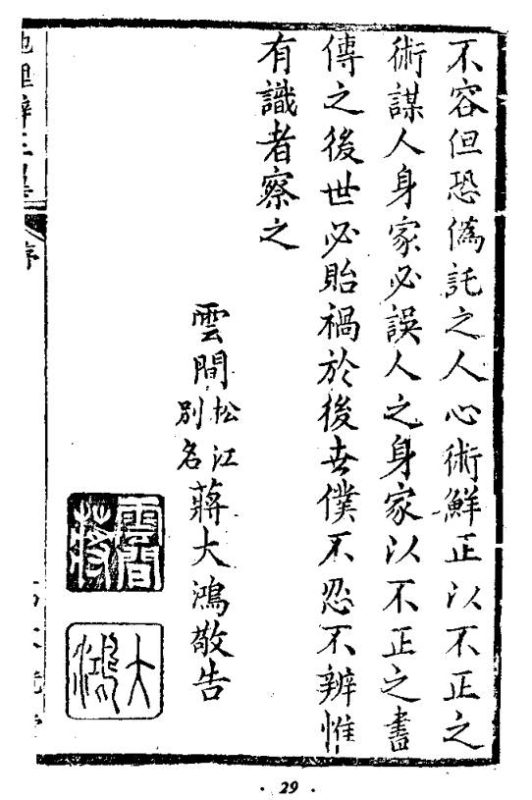 不容但恐僞託之人心術鮮正以不正之
術謀人身家必誤人之身家以不正之書
傳之後世必貽禍於後世僕不忍不辨惟
有識者察之
雲間松江別名蔣大鴻敬告
雲間蔣
大鴻
序
· 29 ·